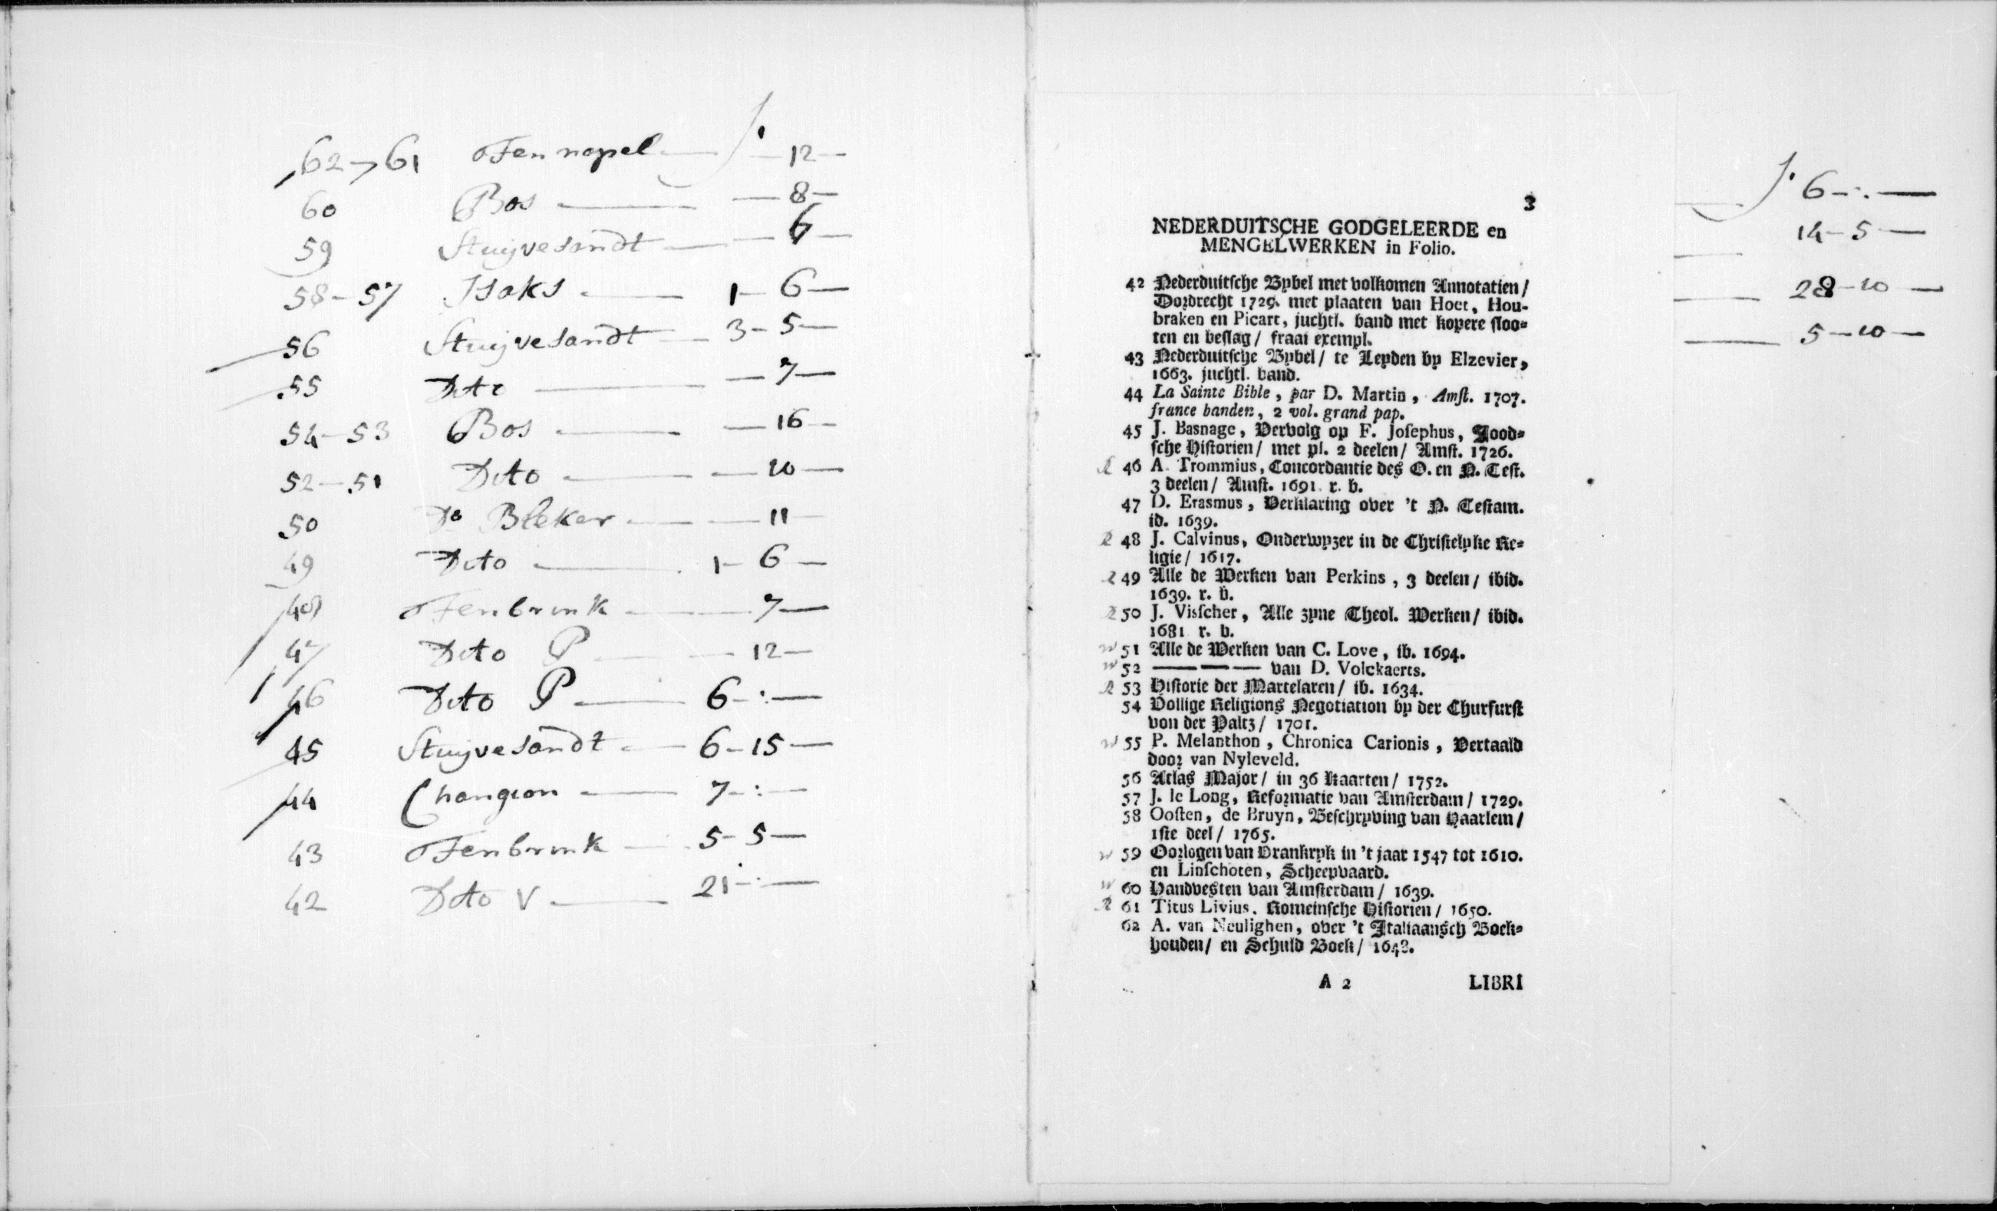 62-61 Tennopel — ƒ — 12 —
60 Bos — — 8 —
59 Stuijvesandt — — 6 —
58-57 Isaks — 1 — 6 —
56 Stuijvesandt — 3 - 5 —
55 Dito — — 7 —
54-53 Bos — — 16 —
52-51 Dito — — 10 —
50 Ds Bleker — — 11 —
49 Dito — 1 — 6 —
48 Tenbrink — 7 —
47 Dito P — — 12 —
46 Dito P — 6 -:—
45 Stuijvesandt — 6 - 15 —
44 Changion — 7 -:—
43 Tenbrink — 5 - 5 —
42 Dito V — 21 -:—
3
NEDERDUITSCHE GODGELEERDE en
MENGELWERKEN in Folio.
42 Nederduitsche Bybel met volkomen Annotatien/
Dordrecht 1729. met plaaten van Hoet, Hou-
braken en Picart, juchtl. band met kopere sloo-
ten en beslag/ fraai exempl.
43 Nederduitsche Bybel/ te Leyden by Elzevier,
1663. juchtl. band.
44 La Sainte Bible, par D. Martin, Amst. 1707.
france banden, 2 vol. grand pap.
45 J. Basnage, Vervolg op F. Josephus, Jood-
sche Historien/ met pl. 2 deelen/ Amst. 1726.
46 A. Trommius, Concordantie des O. en N. Test.
3 deelen/ Amst. 1691. r. b.
47 D. Erasmus, Verklaring over 't N. Testam.
id. 1639.
48 J. Calvinus, Onderwyzer in de Christelyke Re-
ligie/ 1617.
49 Alle de Werken van Perkins, 3 deelen/ ibid.
1639. r. b.
50 J. Visscher, Alle zyne Theol. Werken/ ibid.
1681 r. b.
w 51 Alle de Werken van C. Love, ib. 1694.
w 52 — — — van D. Volckaerts.
53 Historie der Martelaren/ ib. 1634.
54 Vollige Religions Negotiation by der Churfurst
von der Paltz/ 1701.
w 55 P. Melanthon, Chronica Carionis, Vertaald
door van Nyleveld.
56 Atlas Major/ in 36 Kaarten/ 1752.
57 J. le Long, Reformatie van Amsterdam/ 1729.
58 Oosten, de Bruyn, Beschryving van Haarlem/
1ste deel/ 1765.
w 59 Oorlogen van Vrankryk in 't jaar 1547 tot 1610.
en Linschoten, Scheepvaard.
w 60 Handvesten van Amsterdam/ 1639.
61 Titus Livius, Romeinsche Historien/ 1650.
62 A. van Neulighen, over 't Italiaansch Boek-
houden/ en Schuld Boek/ 1648.
A 2 LIBRI
ƒ 6 -:—
14 - 5 —
28 - 10 —
5 - 10 —